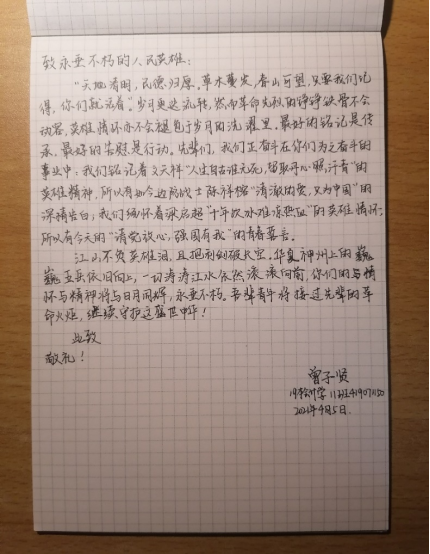 致永垂不朽的人民英雄：
"天地清明，民德归厚。草木蔓发，春山可望，只要我们记
得，你们就活着"。岁月更迭流转，然而革命先烈的铮铮铁骨不会
动容，英雄情怀亦不会褪色于岁月的洗濯里。最好的铭记是传
承，最好的告慰是行动。先辈们，我们正奋斗在你们为之奋斗的
事业中：我们铭记着文天祥"人生自古谁无死，留取丹心照汗青"的
英雄精神，所以有如今边防战士陈祥榕"清澈的爱，只为中国"的
深情告白；我们缅怀着梁启超"十年饮冰难凉热血"的英雄情怀，
所以有今天的"请党放心，强国有我"的青春誓言。
江山不负英雄泪，且把利剑破长空。华夏神州上的巍
巍五岳依旧向上，一切涛涛江水依然滚滚向前，你们的情
怀与精神将与日月同辉，永垂不朽。吾辈青年将接过先辈的革
命火炬，继续守护这盛世中华！
此致
敬礼！
曾子贤
2021年4月5日.